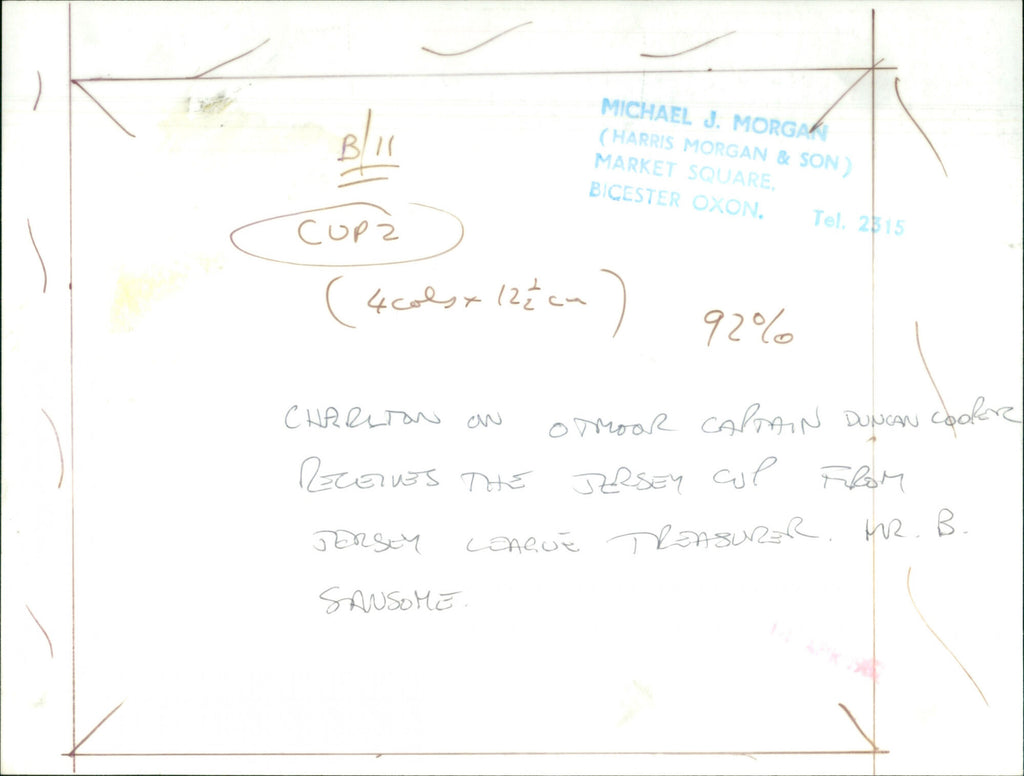 MICHAEL J. MORGAN
(HARRIS MORGAN & SON)
MARKET SQUARE,
BICESTER OXON. Tel. 2315
B/11
CUP 2
(4 cols x 12½ cm)
92%
CHARLTON ON OTMOOR CAPTAIN DUNCAN COOPER
RECEIVES THE JERSEY CUP FROM
JERSEY LEAGUE TREASURER. MR. B.
SANSOME.